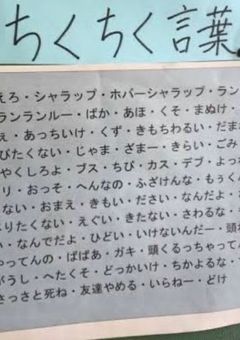 ちくちく言葉
えろ・シャラップ・ホバーシャラップ・ラン
ランランルー・ばか・あほ・くそ・まぬけ・
え・あっちいけ・くず・きもちわるい・だま
びたくない・じゃま・ざまー・きらい・ごみ
やくしろよ・ブス・ちび・カス・デブ・よっ
リ・おっそ・へんなの・ふざけんな・もぅくん
ない・おまえ・きもい・ださい・なんだよ・
りたくない・えぐい・きたない・さわるな・
い・なんでだよ・ひどい・いけないんだー・頭
ってんの・ばばあ・ガキ・頭くるっちゃって
がうし・へたくそ・どっかいけ・ちかよるな・
さっさと死ね・友達やめる・いらねー・どけ